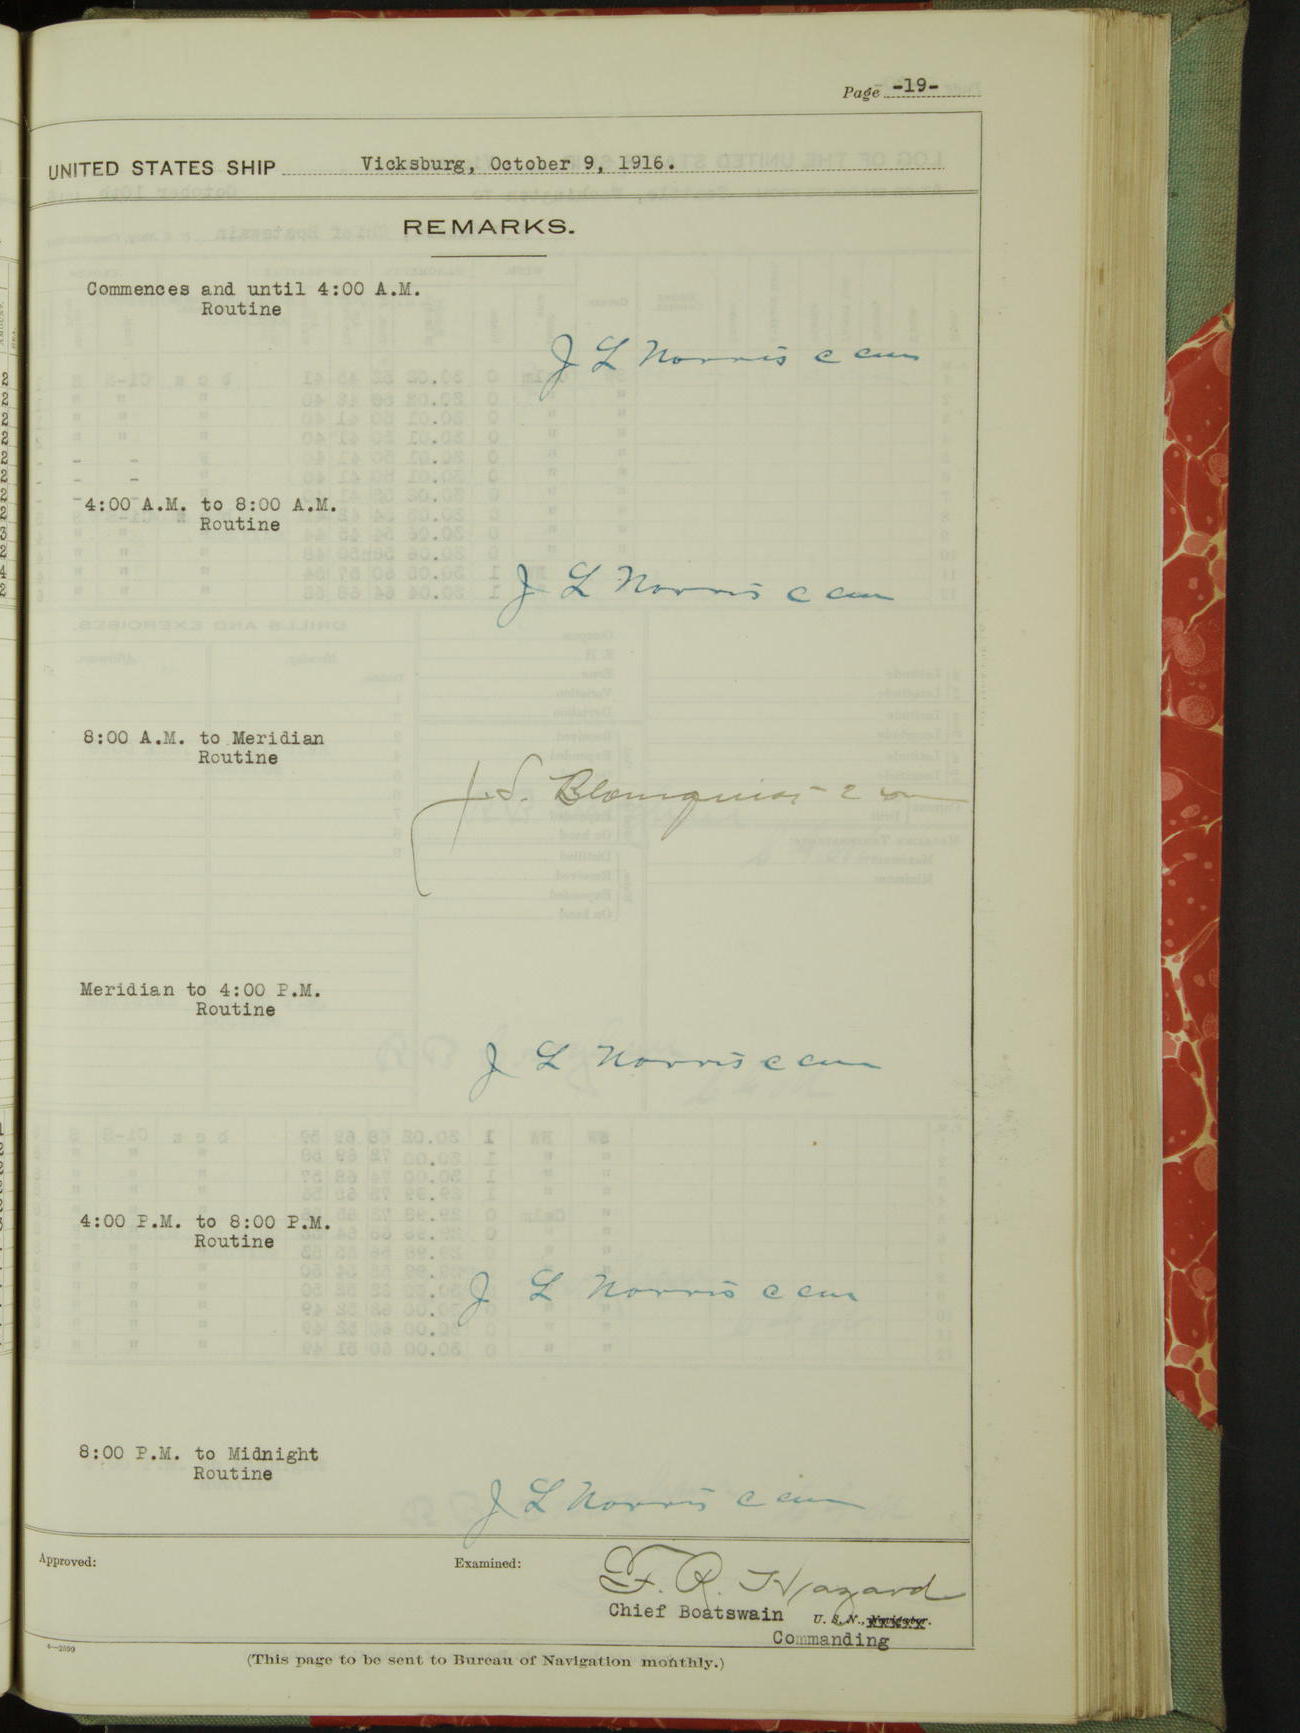 Page -19-
UNITED STATES SHIP Vicksburg, October 9, 1916.
REMARKS.
Commences and until 4:00 A.M.
Routine
J L Norris c cm
4:00 A.M. to 8:00 A.M.
Routine
J L Norris c cm
8:00 A.M. to Meridian
Routine
J.S. Blomquist
Meridian to 4:00 P.M.
Routine
J L Norris c cm
4:00 P.M. to 8:00 P.M.
Routine
J L Norris c cm
8:00 P.M. to Midnight
Routine
J L Norris c cm
Approved:
Examined:
F. R. Hazard
Chief Boatswain U. S. N., Navigator.
Commanding
(This page to be sent to Bureau of Navigation monthly.)